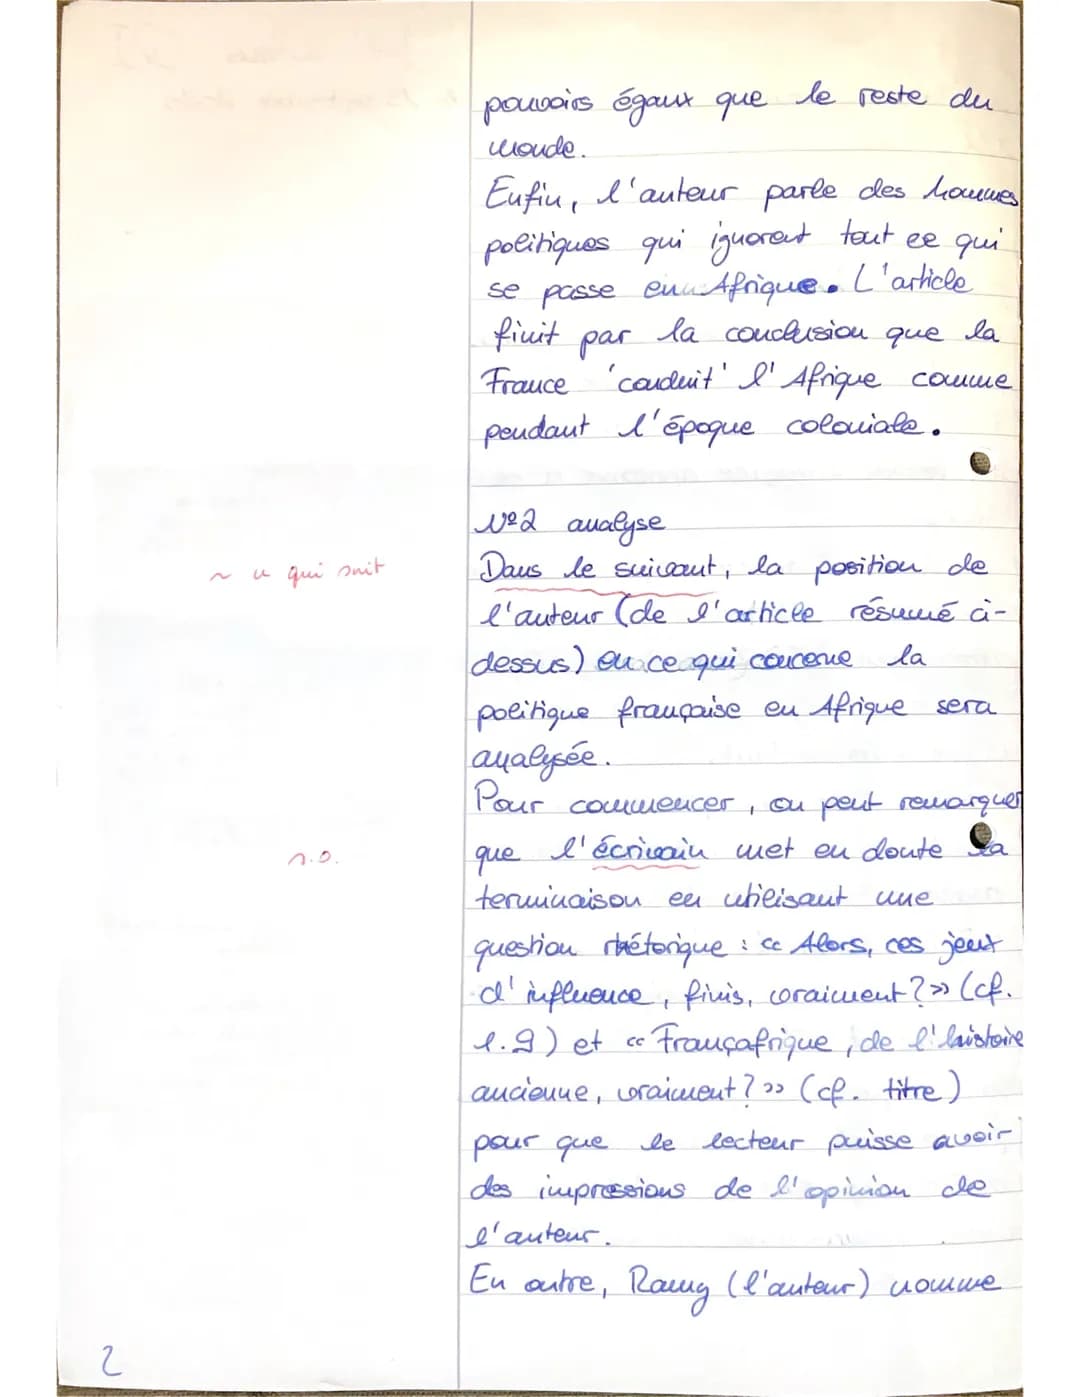 pouvoirs égaux que le reste du
monde.
Enfin, l'auteur parle des hommes
politiques qui ignorent tout ce qui
se passe en Afrique. L'article
finit par la conclusion que la
France 'conduit' l'Afrique comme
pendant l'époque coloniale.
Nº2 analyse
~ ce qui suit
Dans le suivant, la position de
l'auteur (de l'article résumé ci-
dessus) en ce qui concerne la
politique française en Afrique sera
analysée.
Pour commencer, on peut remarquer
n.o.
que l'écrivain met en doute la
terminaison en utilisant une
question rhétorique : « Alors, ces jeux
d'influence, finis, vraiment ? » (cf.
l.9) et « Françafrique, de l'histoire
ancienne, vraiment ? » (cf. titre)
pour que le lecteur puisse avoir
des impressions de l'opinion de
l'auteur.
En outre, Ramy (l'auteur) nomme
2